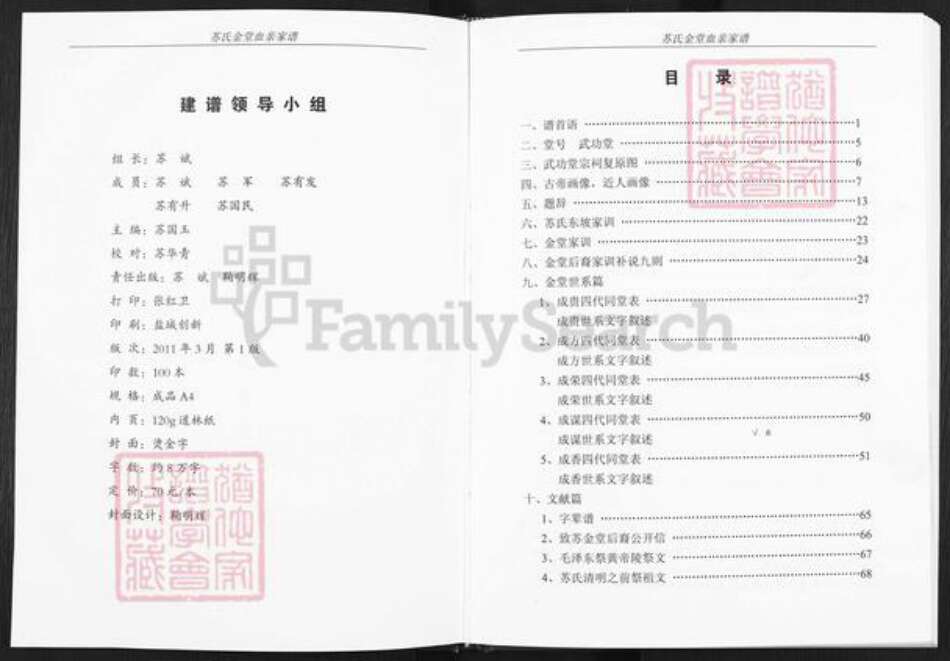 苏氏金堂血亲家谱
建谱领导小组
组 长：苏 斌
成 员：苏 斌 苏 军 苏有发
苏有升 苏国民
主 编：苏国玉
校 对：苏华青
责任出版：苏 斌 鞠明辉
打 印：张红卫
印 刷：盐城创新
版 次：2011年3月 第1版
印 数：100本
规 格：成品A4
内 页：120g道林纸
封 面：烫金字
字 数：约8万字
定 价：70元/本
封面设计：鞠明辉
苏氏金堂血亲家谱
目 录
一、谱首语 1
二、堂号 武功堂 5
三、武功堂宗祠复原图 6
四、古帝画像，近人画像 7
五、题辞 13
六、苏氏东坡家训 22
七、金堂家训 23
八、金堂后裔家训补说九则 24
九、金堂世系篇
1、成贵四代同堂表 27
成贵世系文字叙述
2、成方四代同堂表 40
成方世系文字叙述
3、成荣四代同堂表 45
成荣世系文字叙述
4、成谋四代同堂表 50
成谋世系文字叙述
5、成香四代同堂表 51
成香世系文字叙述
十、文献篇
1、字辈谱 65
2、致苏金堂后裔公开信 66
3、毛泽东祭黄帝陵祭文 67
4、苏氏清明之前祭祖文 68
FamilySearch